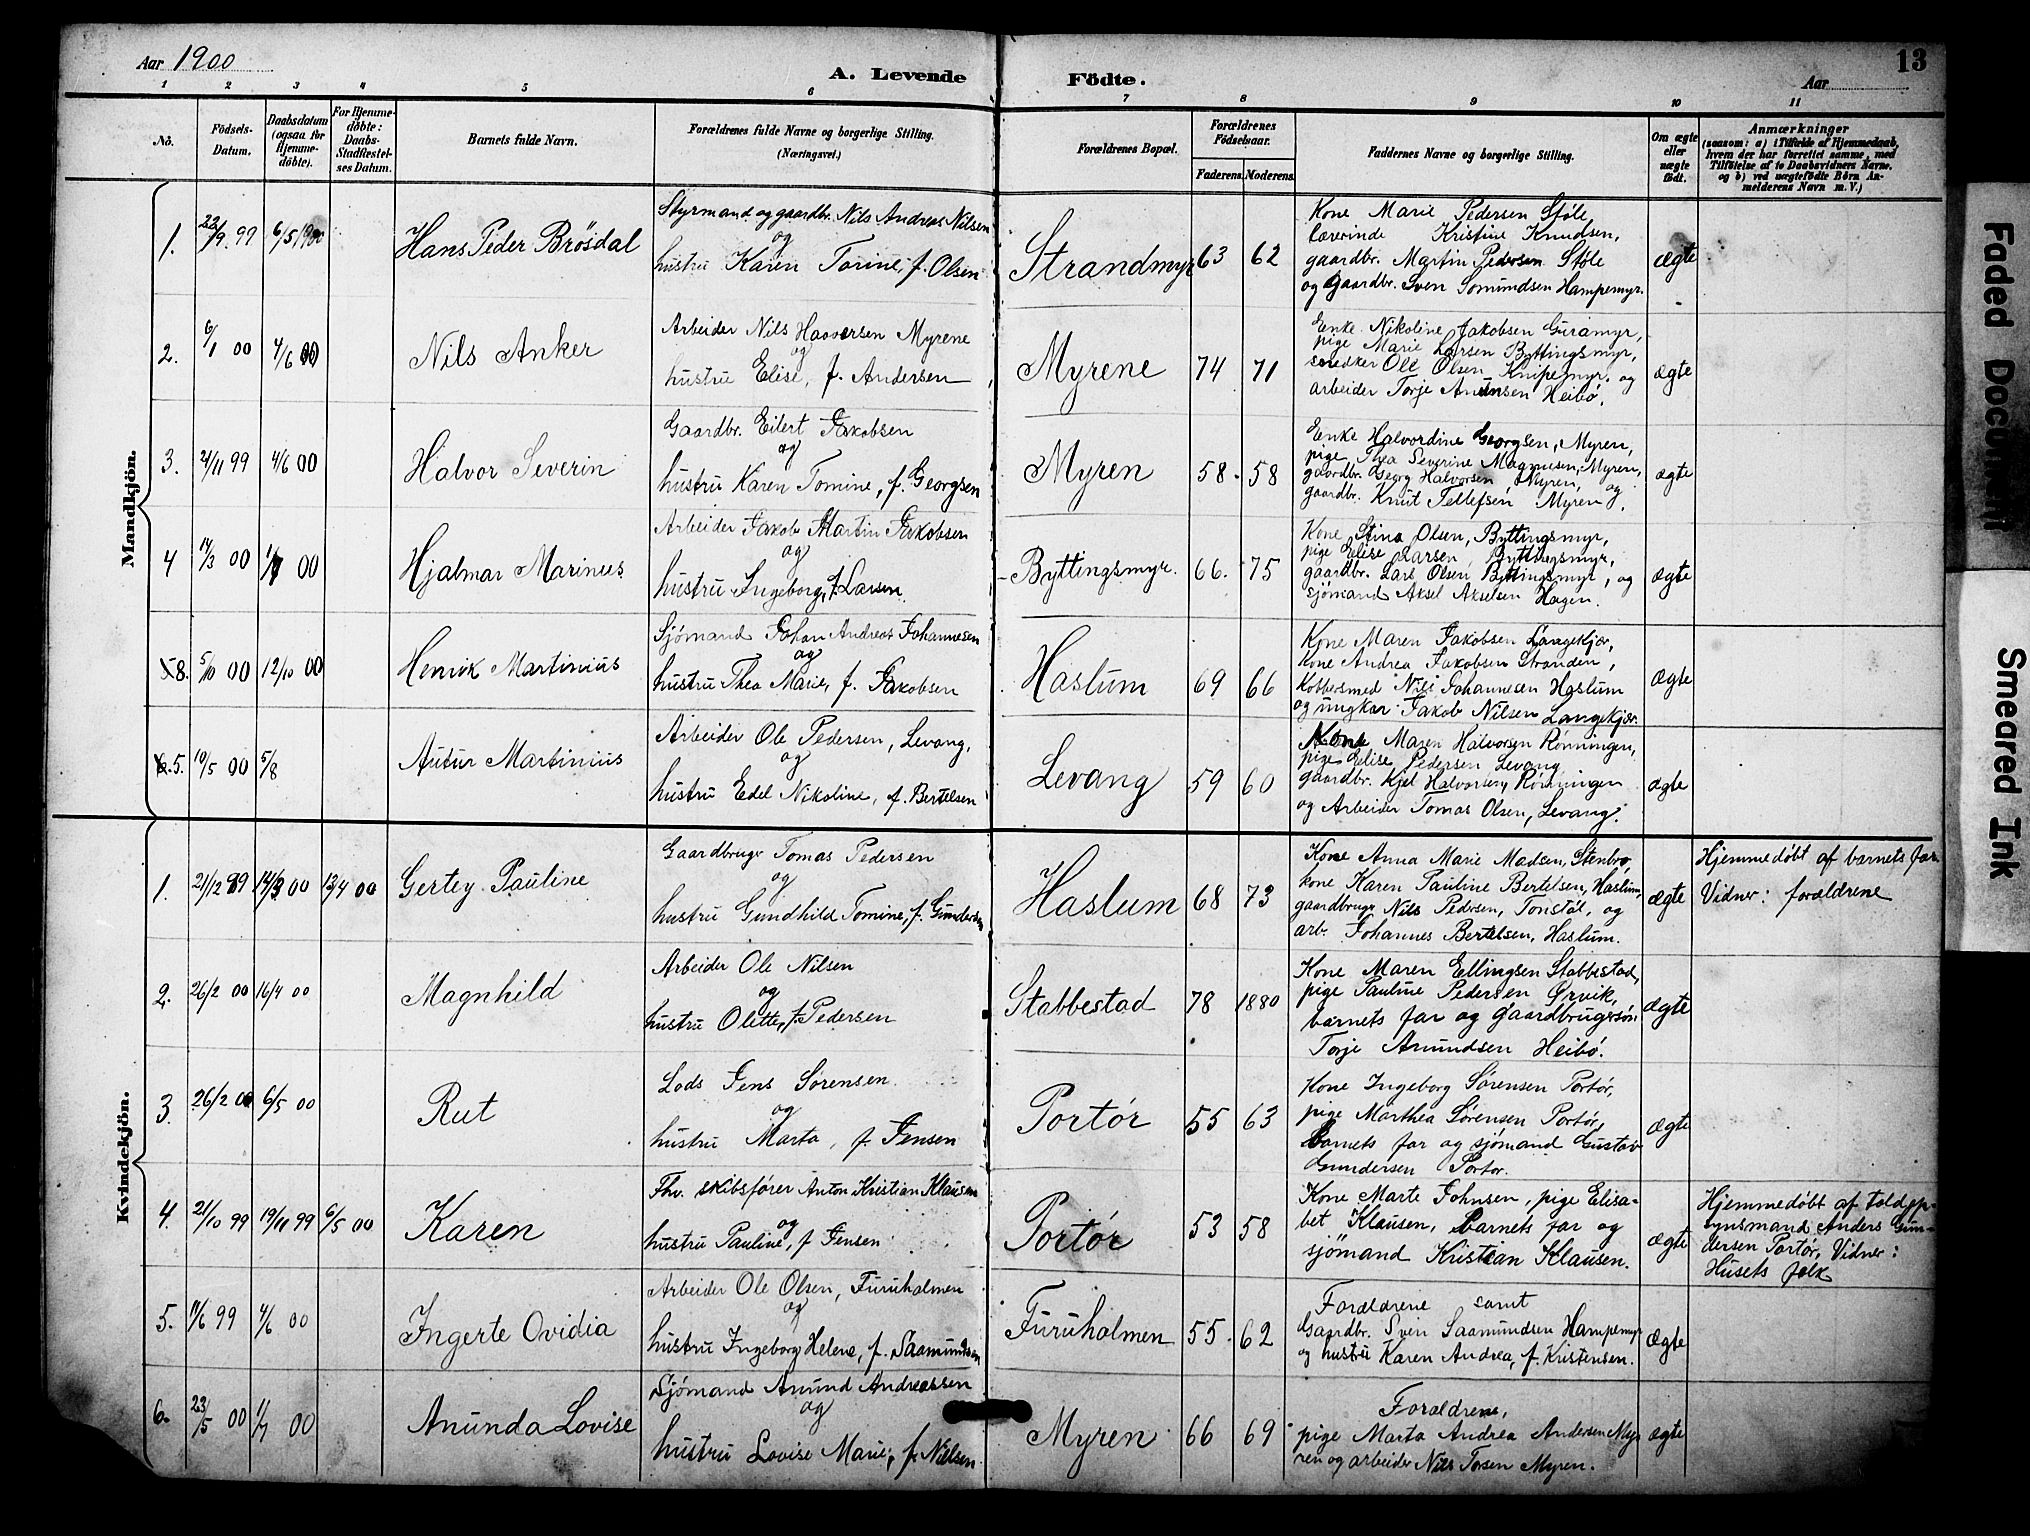 Aar 1900
A. Levende Födte.
Aar
13
1 2 3 4 5 6 7 8 9 10 11
No.
Födsels-Datum.
Daabsdatum (ogsaa for Hjemme-döbte).
For Hjemme-döbte: Daabs-Stadfæstelses Datum.
Barnets fulde Navn.
Forældrenes fulde Navne og borgerlige Stilling.
(Næringsvei.)
Forældrenes Bopæl.
Forældrenes Födselsaar.
Faderens. Moderens.
Faddernes Navne og borgerlige Stilling.
Om ægte eller uægte födt.
Anmærkninger
(saasom: a) i Tilfælde af Hjemmedaab,
hvem der har forrettet samme, med
Tilföielse af to Daabsvidners Navne,
og b) ved uægtefödte Börn An-
melderens Navn m. V.)
Mandkjön.
1. 22/9 99 6/5 1900 Hans Peder Brösdal
Styrmand og gaardbr. Nils Andreas Nilsen
og
hustru Karen Torine, f. Olsen
Strandmyr 63 62
Kone Marie Pedersen Støle,
lærerinde Kristine Knudsen,
gaardbr. Martin Pedersen Støle
og gaardbr. Sven Somundsen Hampemyr.
ægte
2. 6/1 00 4/6 00 Nils Anker
Arbeider Nils Havorsen Myrene
og
hustru Elise, f. Andersen
Myrene 74 71
Enke Nikoline Jakobsen Guramyr,
pige Marie Larsen Byttingsmyr,
snedker Ole Olsen Knipemyr. og
arbeider Torje Heibö.
ægte
3. 21/11 99 4/6 00 Halvor Severin
Gaardbr. Eilert Jakobsen
og
hustru Karen Tomine, f. Georgsen
Myren 58 58
Enke Halvordine Georgsen, Myren,
pige Thea Severine Magnusen, Myren,
gaardbr. Georg Halvorsen, Myren,
gaardbr. Knut Tellefsen Myren og.
ægte
4 14/3 00 1/7 00 Hjalmar Marinius
Arbeider Jakob Martin Jakobsen
og
hustru Ingeborg, f. Larsen
Byttingsmyr. 66. 75
Kone Stina Olsen, Byttingsmyr,
pige Elise Larsen, Byttingsmyr,
gaardbr. Lars Olsen Byttingsmyr, og
sjömand Aksel Akselsen Hagen.
ægte
8. 5/10 00 12/10 00 Henrik Martinius
Sjömand Johan Andreas Johannesen
og
hustru Thea Marie, f. Jakobsen
Haslum 69 66
Kone Maren Jakobsen Langekjær,
kone Andrea Jakobsen Stranden,
Kobbersmed Nils Johannesen Haslum
og ungkar Jakob Nilsen Langekjær.
ægte
5. 10/5 00 5/8 Autur Martinius
Arbeider Ole Pedersen, Levang,
og
hustru Edel Nikoline, f. Bertelsen
Levang 59 60
Kone Maren Halvorsen Rønningen,
pige Elise Pedersen Levang
gaardbr. Kjel Halvorsen, Rønningen
og Arbeider Tomas Olsen, Levang.
ægte
Kvindekjön.
1. 21/12 99 14/3 00 13/4 00 Gertey Pauline
Gaardbruger Tomas Pedersen
og
hustru Gundhild Tomine, f. Gundersen
Haslum 68 73
Kone Anna Marie Madsen, Stenbro,
kone Karen Pauline Bertelsen, Haslum,
gaardbruger Nils Pedersen, Tonstöl, og
arb. Johannes Bertelsen, Haslum.
ægte
Hjemmedöbt af barnets far.
Vidner: forældrene
2. 26/2 00 16/4 00 Magnhild
Arbeider Ole Nilsen
og
hustru Olette, f. Pedersen
Stabbestad 78 1880
Kone Maren Ellingsen Stabbestad,
pige Pauline Pedersen Ørvik,
barnets far og gaardbrugersön
Torje Anundsen Heibö.
ægte
3. 26/2 00 6/5 00 Rut
Lods Jens Sørensen
og
hustru Marta, f. Jensen
Portör 55 63
Kone Ingeborg Sørensen Portör,
pige Marthea Sørensen Portör,
Barnets far og sjömand Gustav
Gundersen Portör.
ægte
4. 21/10 99 19/11 99 6/5 00 Karen
Fhv. skibsfører Anton Kristian Klausen
og
hustru Pauline, f Jensen
Portör 53 58
Kone Marte Johnsen, pige Elisa-
bet Klausen, Barnets far og
sjömand Kristian Klausen.
ægte
Hjemmedöbt af toldop-
synsmand Anders Gun-
dersen Portör, Vidner:
Husets folk
5. 11/6 99 4/6 00 Ingerte Ovidia
Arbeider Ole Olsen, Furuholmen
og
hustru Ingeborg Helene, f. Saamundsen
Furuholmen 55. 62
Forældrene samt
Gaardbr. Sven Saamundsen Hampemyr
og hustru Karen Andrea, f. Kristensen.
ægte
6. 23/5 00 1/7 00 Anunda Lovise
Sjömand Anund Andreassen
og
hustru Lovise Marie, f. Nielsen
Myren 66 69
Forældrene,
pige Marta Andrea Andersen My-
ren og arbeider Nils Torsen Myren.
ægte
Faded Document
Smeared Ink